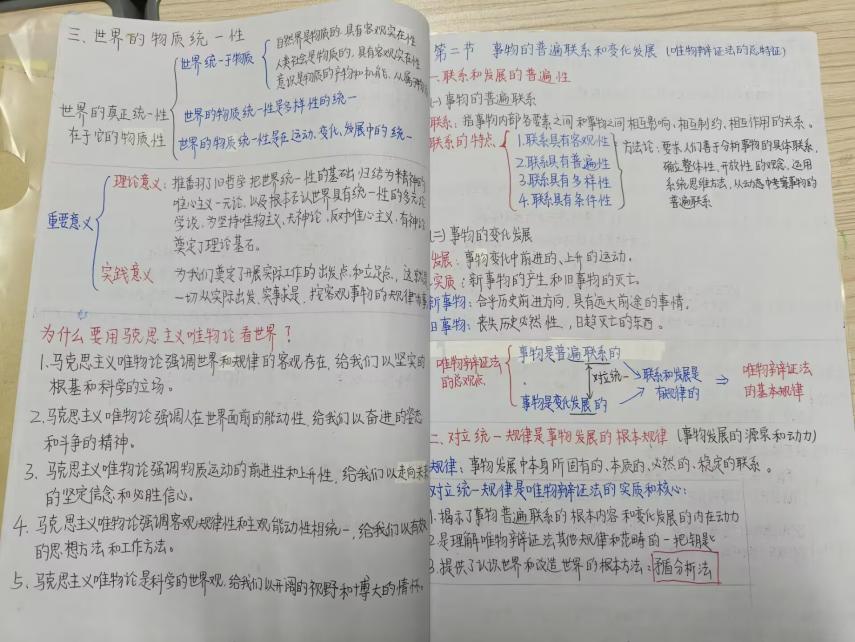 三、世界的物质统一性
世界的真正统一性
在于它的物质性
世界统一于物质
自然界是物质的,具有客观实在性
人类社会是物质的,具有客观实在性
意识是物质的产物和机能,从属于
世界的物质统一性是多样性的统一
世界的物质统一性是在运动、变化、发展中的统一
重要意义
理论意义:推翻了旧哲学把世界统一性的基础归结为精神的
唯心主义一元论,以及根本否认世界具有统一性的多元论
学说,为坚持唯物主义、无神论,反对唯心主义、有神论
奠定了理论基石。
实践意义 为我们奠定了开展实际工作的出发点和立足点,这就是
一切从实际出发,实事求是,按客观事物的规律
为什么要用马克思主义唯物论看世界?
1.马克思主义唯物论强调世界和规律的客观存在,给我们以坚实的
根基和科学的立场。
2.马克思主义唯物论强调人在世界面前的能动性,给我们以奋进的姿态
和斗争的精神。
3.马克思主义唯物论强调物质运动的前进性和上升性,给我们以走向未来
的坚定信念和必胜信心。
4.马克思主义唯物论强调客观规律性和主观能动性相统一,给我们以有效
的思想方法和工作方法。
5.马克思主义唯物论是科学的世界观,给我们以开阔的视野和博大的情怀。
第二节 事物的普遍联系和变化发展(唯物辩证法的总特征)
一、联系和发展的普遍性
(一)事物的普遍联系
联系:指事物内部各要素之间和事物之间相互影响、相互制约、相互作用的关系。
联系的特点
1.联系具有客观性
2.联系具有普遍性
3.联系具有多样性
4.联系具有条件性
方法论:要求人们善于分析事物的具体联系,
确立整体性、开放性的观念,运用
系统思维方法,从动态中考察事物的
普遍联系
(二)事物的变化发展
发展:事物变化中前进的、上升的运动。
实质:新事物的产生和旧事物的灭亡。
新事物:合乎历史前进方向,具有远大前途的事情。
旧事物:丧失历史必然性,日趋灭亡的东西。
唯物辩证法
的总观点
事物是普遍联系的
对立统一
事物是变化发展的
联系和发展是
有规律的
唯物辩证法
的基本规律
二、对立统一规律是事物发展的根本规律(事物发展的源泉和动力)
规律:事物发展中本身所固有的、本质的、必然的、稳定的联系。
对立统一规律是唯物辩证法的实质和核心:
1.揭示了事物普遍联系的根本内容和变化发展的内在动力
2.是理解唯物辩证法其他规律和范畴的一把钥匙
3.提供了认识世界和改造世界的根本方法:矛盾分析法